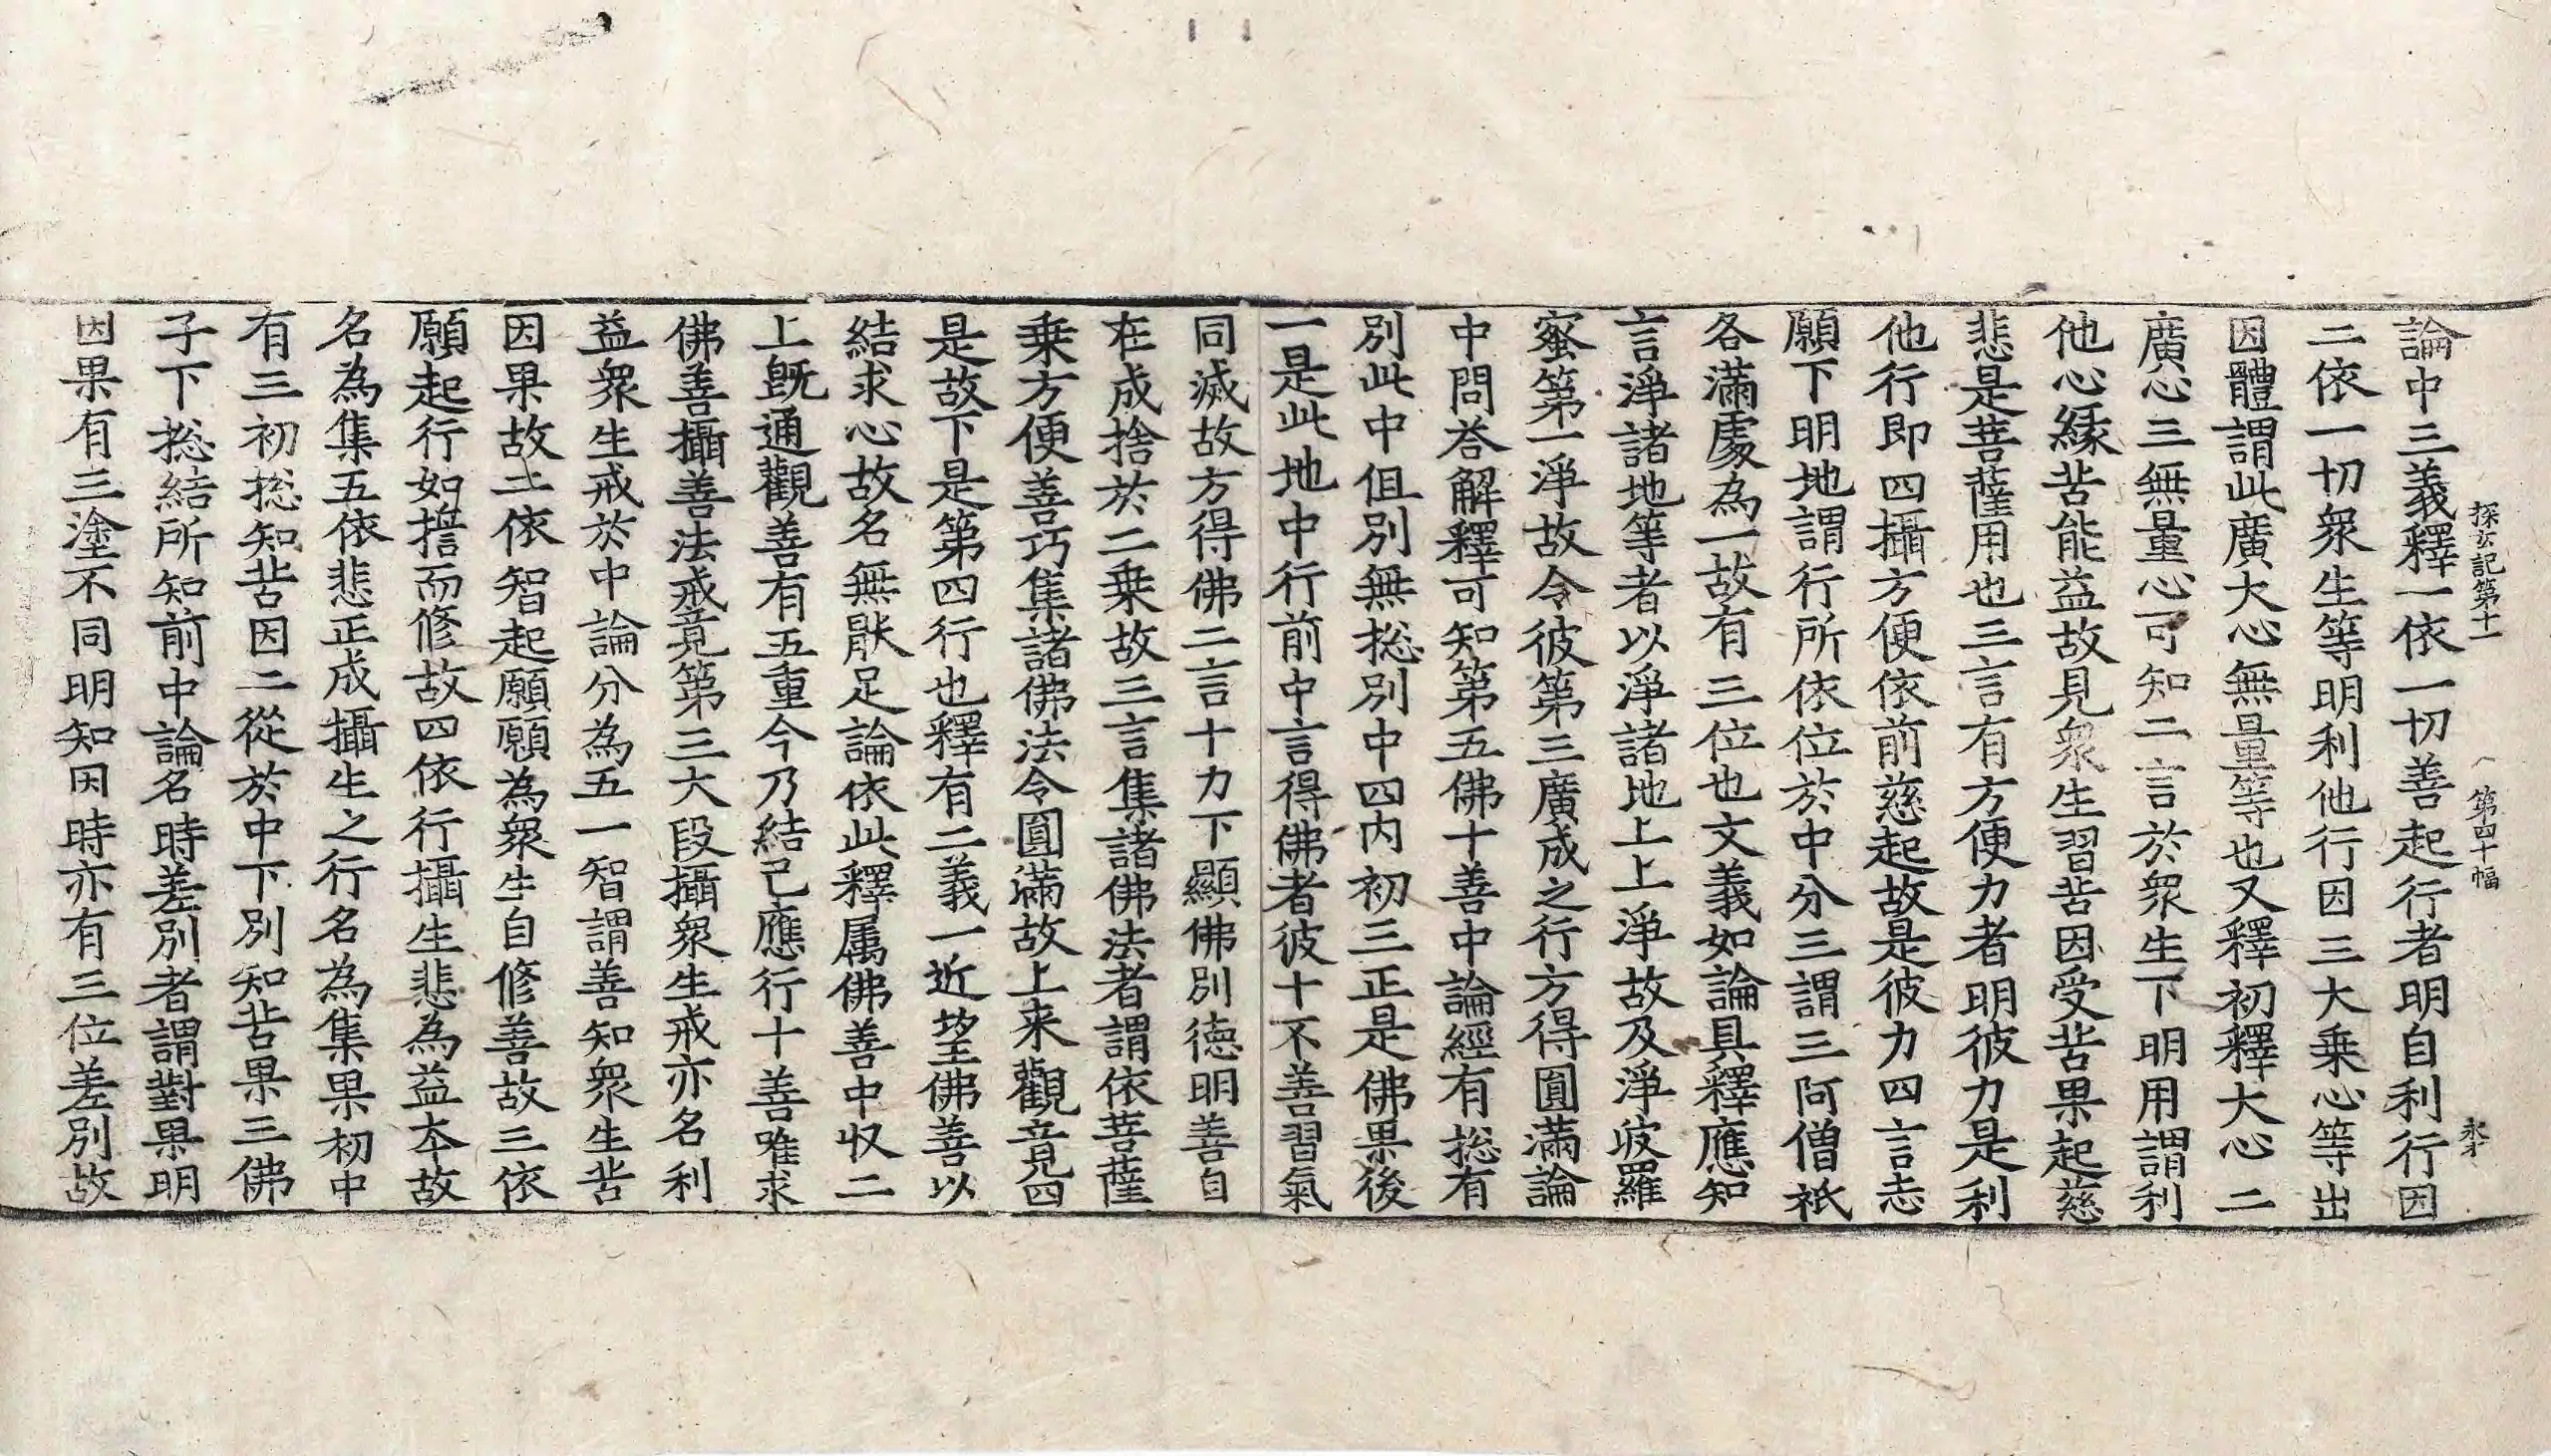 探玄記第十一　第四十幅　永才
論中三義釋一依一切善起行者明自利行因
二依一切衆生等明利他行因三大乗心等出
因體謂此廣大心無量等也又釋初釋大心二
廣心三無量心可知二言於衆生下明用謂利
他心緣苦能益故見衆生習苦因受苦果起慈
悲是菩薩用也三言有方便力者明彼力是利
他行即四攝方便依前慈起故是彼力四言志
願下明地謂行所依位於中分三謂三阿僧祇
各滿處為一故有三位也文義如論具釋應知
言淨諸地等者以淨諸地上上淨故及淨波羅
蜜第一淨故令彼第三廣成之行方得圓滿論
中問荅解釋可知第五佛十善中論經有捴有
別此中但別無捴別中四内初三正是佛果後
一是此地中行前中言得佛者彼十不善習氣
同滅故方得佛二言十力下顯佛別德明善自
在成捨於二乗故三言集諸佛法者謂依菩薩
乗方便善巧集諸佛法令圓滿故上来觀竟四
是故下是第四行也釋有二義一近望佛善以
結求心故名無猒足論依此釋属佛善中収二
上旣通觀善有五重今乃結己應行十善唯求
佛善攝善法戒竟第三大段攝衆生戒亦名利
益衆生戒於中論分為五一智謂善知衆生苦
因果故二依智起願願為衆生自修善故三依
願起行如擔而修故四依行攝生悲為益夲故
名為集五依悲正成攝生之行名為集果初中
有三初捴知苦因二從於中下別知苦果三佛
子下捴結所知前中論名時差別者謂對果明
因果有三塗不同明知因時亦有三位差別故